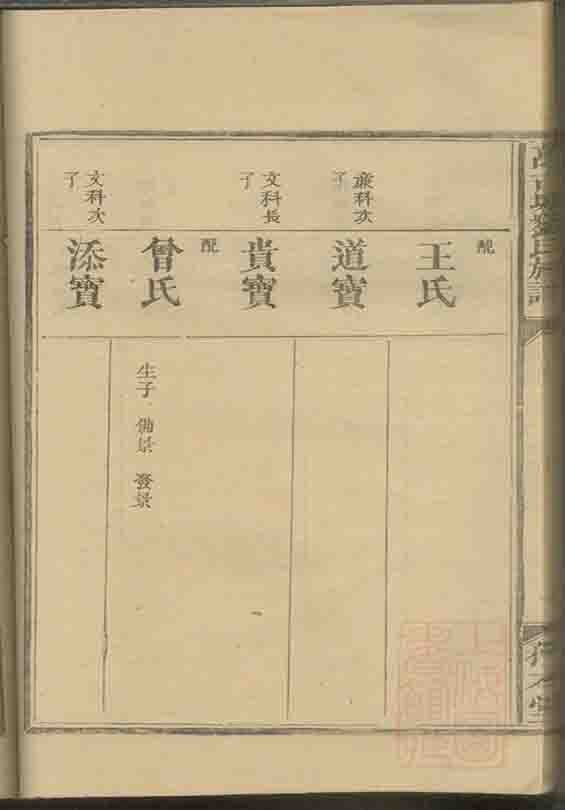 配
王氏
彥科次
子
道寶
文科長
子
貴寶
配
曾氏
生子 備景 發景
文科次
子
添寶
氏族譜